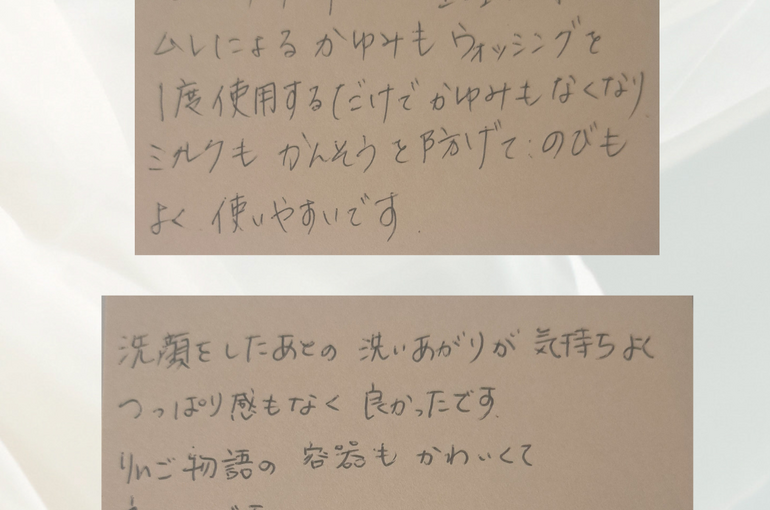 ムレによるかゆみも ウォッシングを
1度使用するだけで かゆみもなくなり
ミルクも かんそうを防げて、のびも
よく 使いやすいです.
洗顔をしたあとの 洗いあがりが 気持ちよく
つっぱり感もなく 良かったです.
りんご物語の 容器も かわいくて